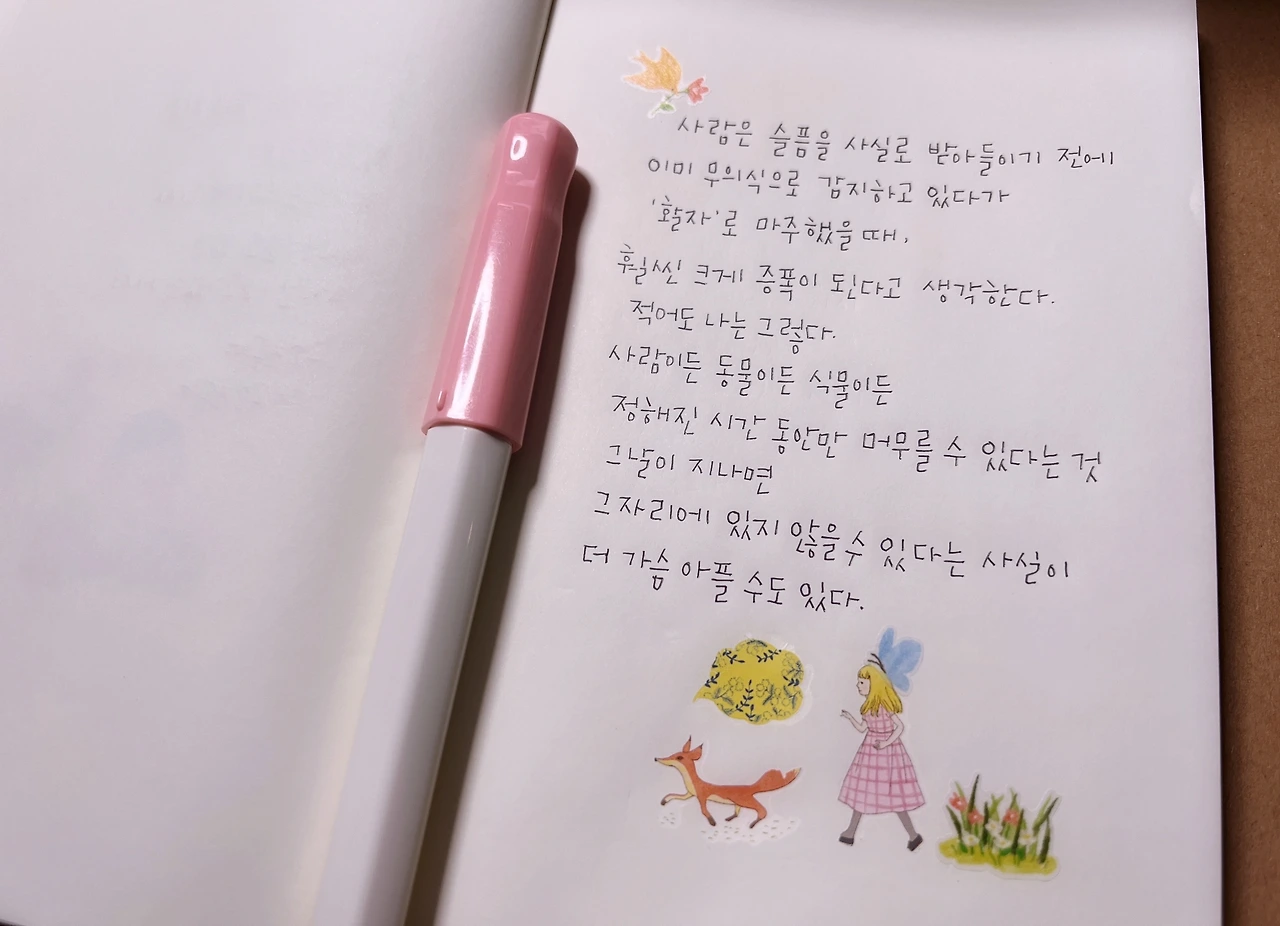 사람은 슬픔을 사실로 받아들이기 전에
이미 무의식으로 감지하고 있다가
'활자'로 마주했을 때,
훨씬 크게 증폭이 된다고 생각한다.
적어도 나는 그렇다.
사람이든 동물이든 식물이든
정해진 시간 동안만 머무를 수 있다는 것
그날이 지나면
그 자리에 있지 않을 수 있다는 사실이
더 가슴 아플 수도 있다.